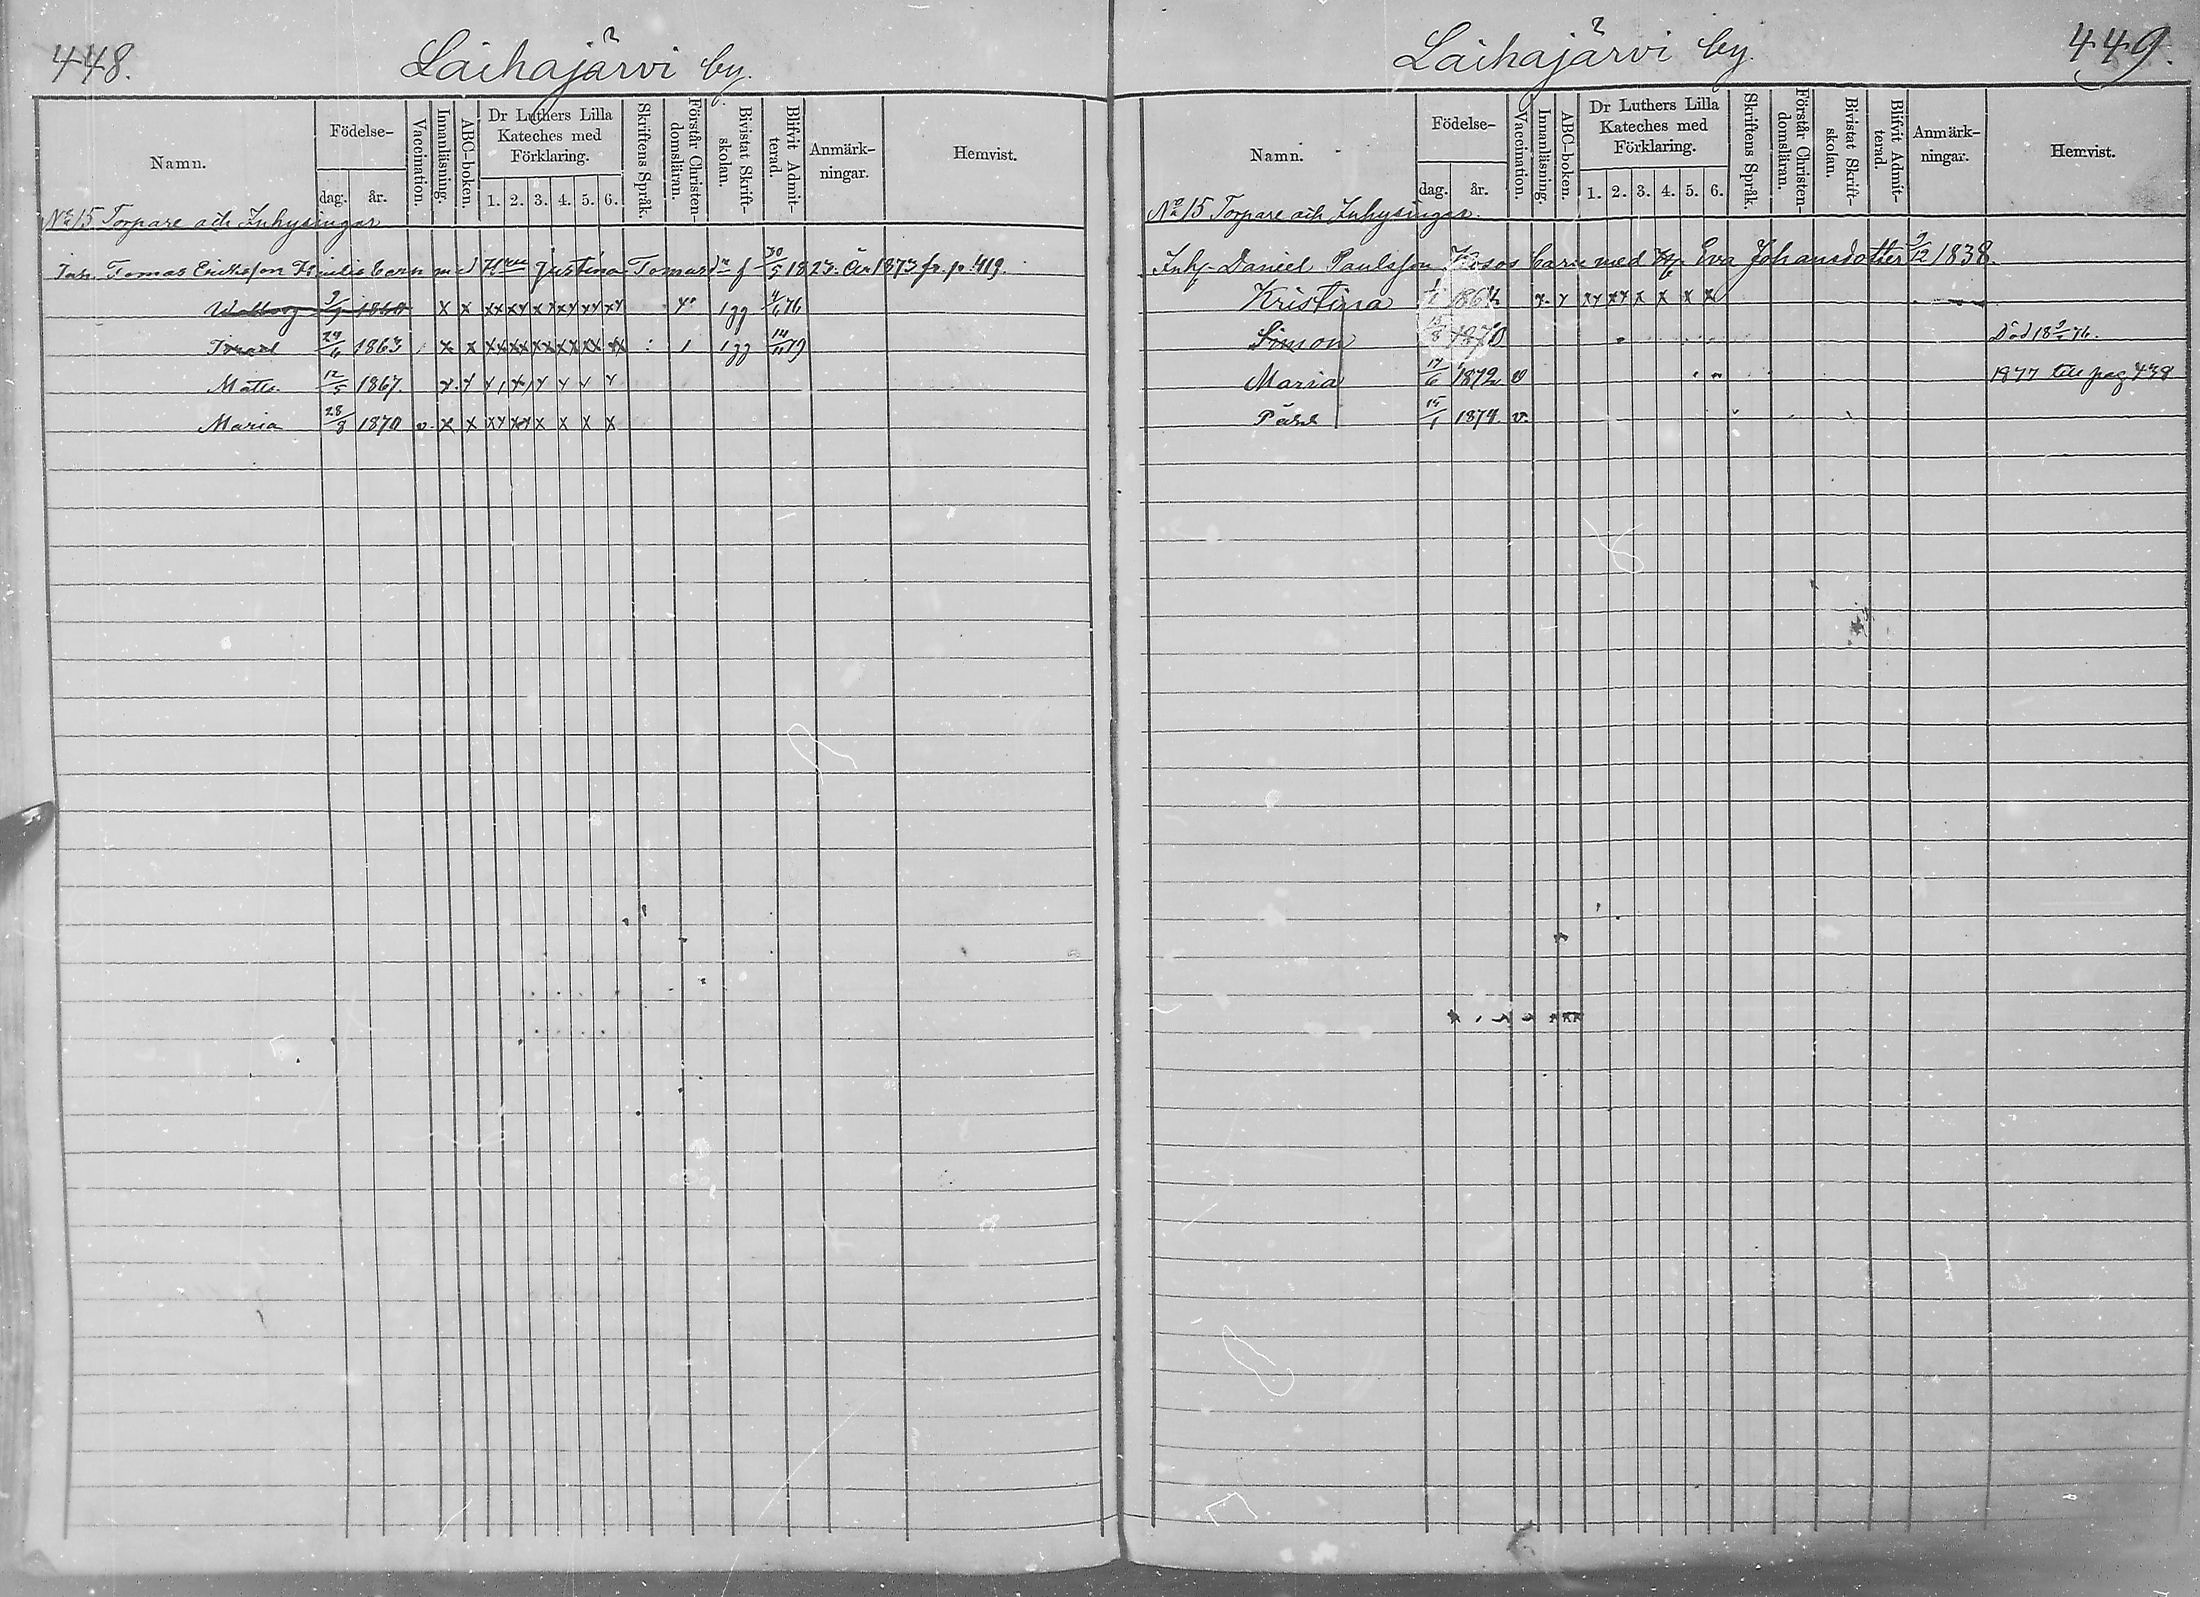 448.
Laihajärvi by.
Namn.
Födelse-
dag. år.
Vaccination.
Innanläsning.
ABC-boken.
Dr Luthers Lilla Kateches med Förklaring.
1. 2. 3. 4. 5. 6.
Skriftens Språk.
Förstår Christen-domsläran.
Bivistat Skrift-skolan.
Blifvit Admit-terad.
Anmärk-ningar.
Hemvist.
No 15 Torpare och Inhysingar
Inh. Tomas Eriksson barn med Justina Tomasdr f 30/5 1823. År 1873 fr. p. 419.
Walborg
24/6 1863 x x xx xx xx xx xx xx 1 1gg 14/11 79
Matts 12/5 1867. x. x
Maria 28/8 1870 v. x x xx xx x x x x
Laihajärvi by.
449.
Namn.
Födelse-
dag. år.
Vaccination.
Innanläsning.
ABC-boken.
Dr Luthers Lilla Kateches med Förklaring.
1. 2. 3. 4. 5. 6.
Skriftens Språk.
Förstår Christen-domsläran.
Bivistat Skrift-skolan.
Blifvit Admit-terad.
Anmärk-ningar.
Hemvist.
No 15 Torpare och Inhysingar.
Inh. Daniel Paulsson barn med Eva Johansdotter 9/12 1838.
Kristina 1864 x. x xx xx x x x x
Simon 1870 Död
Maria 17/6 1872 v 1877 till pag 438
Påhl 15/1 1874. v.